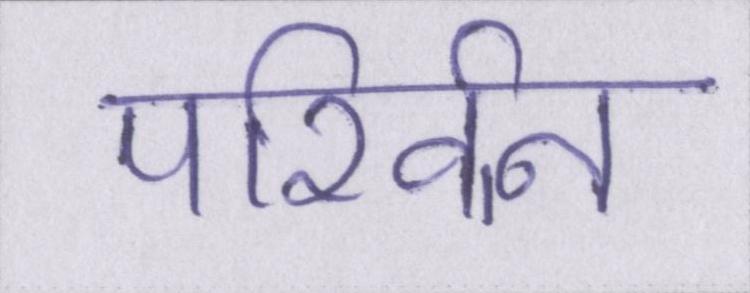 परिवनि